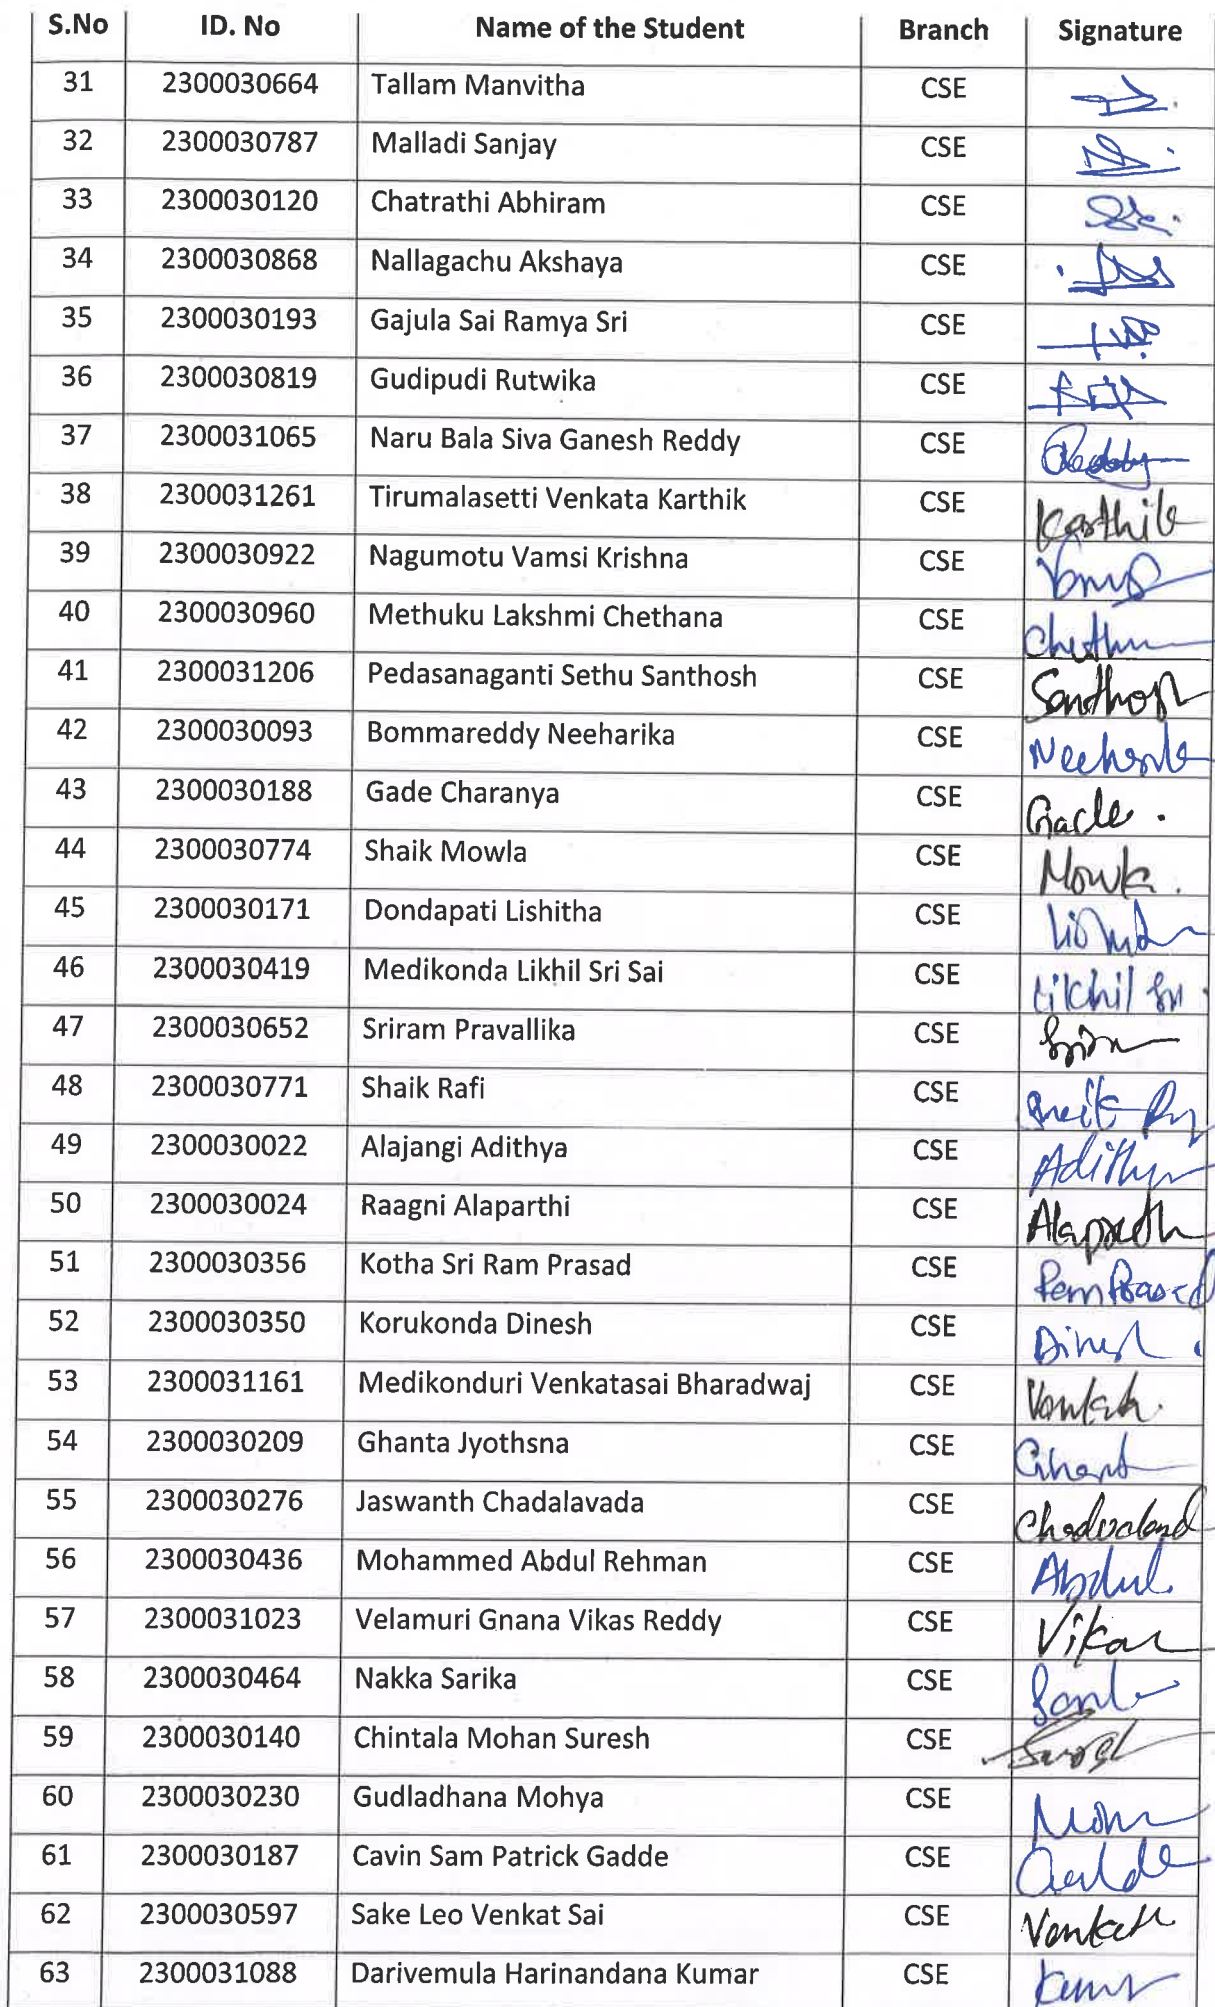 S.No ID. No Name of the Student Branch Signature
31 2300030664 Tallam Manvitha CSE
32 2300030787 Malladi Sanjay CSE
33 2300030120 Chatrathi Abhiram CSE
34 2300030868 Nallagachu Akshaya CSE
35 2300030193 Gajula Sai Ramya Sri CSE
36 2300030819 Gudipudi Rutwika CSE
37 2300031065 Naru Bala Siva Ganesh Reddy CSE Reddy
38 2300031261 Tirumalasetti Venkata Karthik CSE Karthik
39 2300030922 Nagumotu Vamsi Krishna CSE
40 2300030960 Methuku Lakshmi Chethana CSE
41 2300031206 Pedasanaganti Sethu Santhosh CSE Santhosh
42 2300030093 Bommareddy Neeharika CSE
43 2300030188 Gade Charanya CSE Gade .
44 2300030774 Shaik Mowla CSE Mowla .
45 2300030171 Dondapati Lishitha CSE
46 2300030419 Medikonda Likhil Sri Sai CSE Likhil Sri .
47 2300030652 Sriram Pravallika CSE
48 2300030771 Shaik Rafi CSE
49 2300030022 Alajangi Adithya CSE Adithya
50 2300030024 Raagni Alaparthi CSE
51 2300030356 Kotha Sri Ram Prasad CSE Ram Prasad
52 2300030350 Korukonda Dinesh CSE Dinesh .
53 2300031161 Medikonduri Venkatasai Bharadwaj CSE
54 2300030209 Ghanta Jyothsna CSE
55 2300030276 Jaswanth Chadalavada CSE
56 2300030436 Mohammed Abdul Rehman CSE Abdul.
57 2300031023 Velamuri Gnana Vikas Reddy CSE Vikas
58 2300030464 Nakka Sarika CSE
59 2300030140 Chintala Mohan Suresh CSE
60 2300030230 Gudladhana Mohya CSE
61 2300030187 Cavin Sam Patrick Gadde CSE
62 2300030597 Sake Leo Venkat Sai CSE
63 2300031088 Darivemula Harinandana Kumar CSE